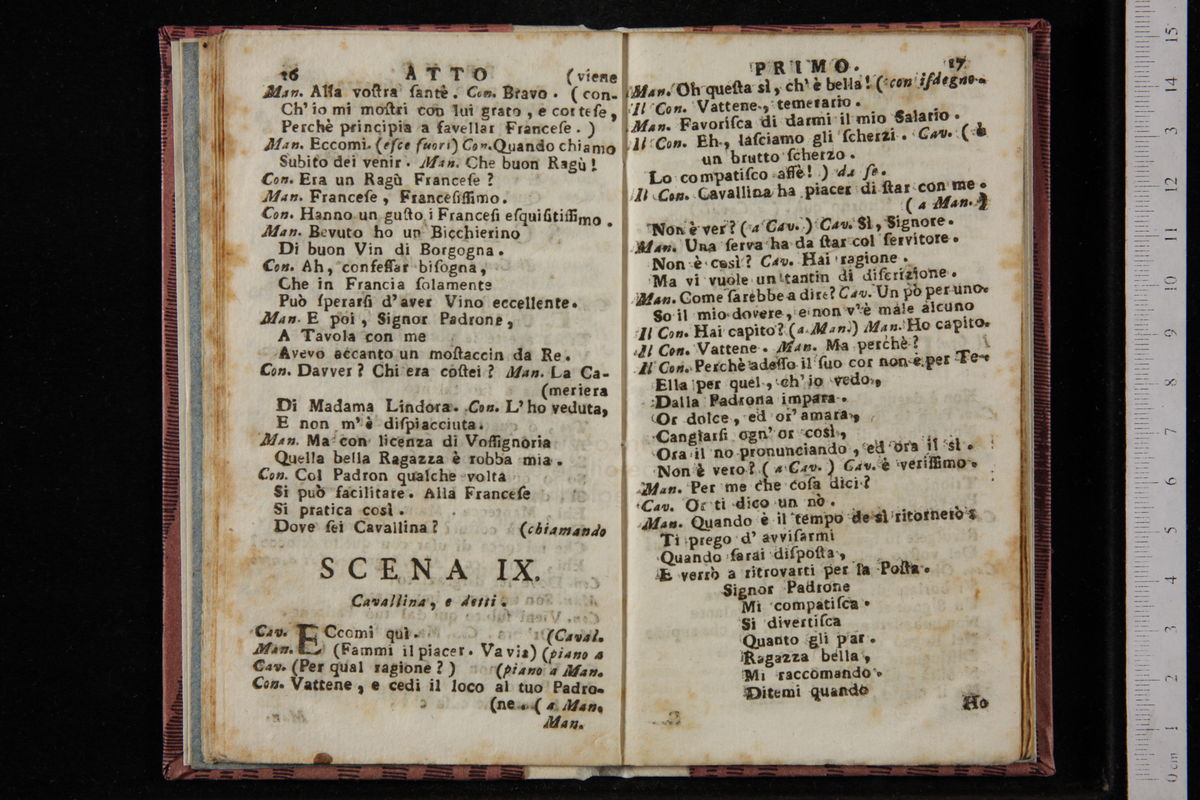 16 ATTO (viene
Man. Alla voſtra ſantè. Con. Bravo. (con-
Ch' io mi moſtri con lui grato, e corteſe,
Perchè principia a favellar Franceſe. )
Man. Eccomi. (eſce fuori) Con. Quando chiamo
Subito dei venir. Man. Che buon Ragù!
Con. Era un Ragù Franceſe?
Man. Franceſe, Franceſiſſimo.
Con. Hanno un guſto i Franceſi eſquiſitiſſimo.
Man. Bevuto ho un Bicchierino
Di buon Vin di Borgogna.
Con. Ah, confeſſar biſogna,
Che in Francia ſolamente
Può ſperarſi d'aver Vino eccellente.
Man. E poi, Signor Padrone,
A Tavola con me
Avevo accanto un moſtaccin da Re.
Con. Davver? Chi era coſtei? Man. La Ca-
(meriera
Di Madama Lindora. Con. L'ho veduta,
E non m'è diſpiacciuta.
Man. Ma con licenza di Voſſignoria
Quella bella Ragazza è robba mia.
Con. Col Padron qualche volta
Si può facilitare. Alla Franceſe
Si pratica così.
Dove ſei Cavallina? (chiamando
SCENA IX.
Cavallina, e detti.
Cav. ECcomi quì. (Caval.
Man. (Fammi il piacer. Va via) (piano a
Cav. (Per qual ragione?) (piano a Man.
Con. Vattene, e cedi il loco al tuo Padro-
(ne. (a Man.
Man.
PRIMO. 17
Man. Oh queſta sì, ch' è bella! (con iſdegno.
Il Con. Vattene, temerario.
Man. Favoriſca di darmi il mio Salario.
Il Con. Eh, laſciamo gli ſcherzi. Cav. (è
un brutto ſcherzo.
Lo compatiſco affè!) da ſe.
Il Con. Cavallina ha piacer di ſtar con me.
(a Man.)
Non è ver? (a Cav.) Cav. Sì, Signore.
Man. Una ſerva ha da ſtar col ſervitore.
Non è così? Cav. Hai ragione.
Ma vi vuole un tantin di diſcrizione.
Man. Come ſarebbe a dire? Cav. Un pò per uno.
So il mio dovere, e non v'è male alcuno
Il Con. Hai capito? (a Man.) Man. Ho capito.
Il Con. Vattene. Man. Ma perchè?
Il Con. Perchè adeſſo il ſuo cor non è per Te.
Ella per quel, ch' io vedo,
Dalla Padrona impara.
Or dolce, ed or' amara,
Cangiarſi ogn' or così,
Ora il no pronunciando, ed ora il sì.
Non è vero? (a Cav.) Cav. è veriſſimo.
Man. Per me che coſa dici?
Cav. Or ti dico un nò.
Man. Quando è il tempo de sì ritornerò:
Ti prego d' avviſarmi
Quando ſarai diſpoſta,
E verrò a ritrovarti per la Poſta.
Signor Padrone
Mi compatiſca.
Si divertiſca
Quanto gli par.
Ragazza bella,
Mi raccomando.
Ditemi quando
Ho